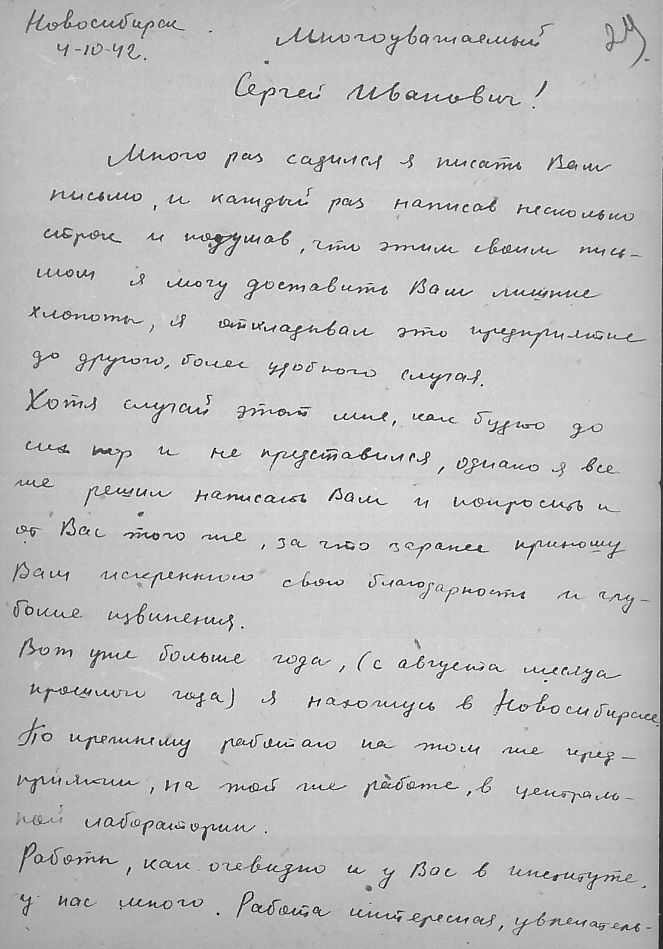 Новосибирск
4-10-42.
29.
Многоуважаемый
Сергей Иванович!
Много раз садился я писать Вам
письмо, и каждый раз написав несколько
строк и подумав, что этим своим пись-
мом я могу доставить Вам лишние
хлопоты, я откладывал это предприятие
до другого, более удобного случая.
Хотя случай этот мне, как будто до
сих пор и не представился, однако я все
же решил написать Вам и попросить и
от Вас того же, за что заранее приношу
Вам искреннюю свою благодарность и глу-
бокие извинения.
Вот уже больше года, (с августа месяца
прошлого года) я нахожусь в Новосибирске.
По прежнему работаю на том же пред-
приятии, на той же работе, в централь-
ной лаборатории.
Работы, как очевидно и у Вас в институте,
у нас много. Работа интересная, увлекатель-